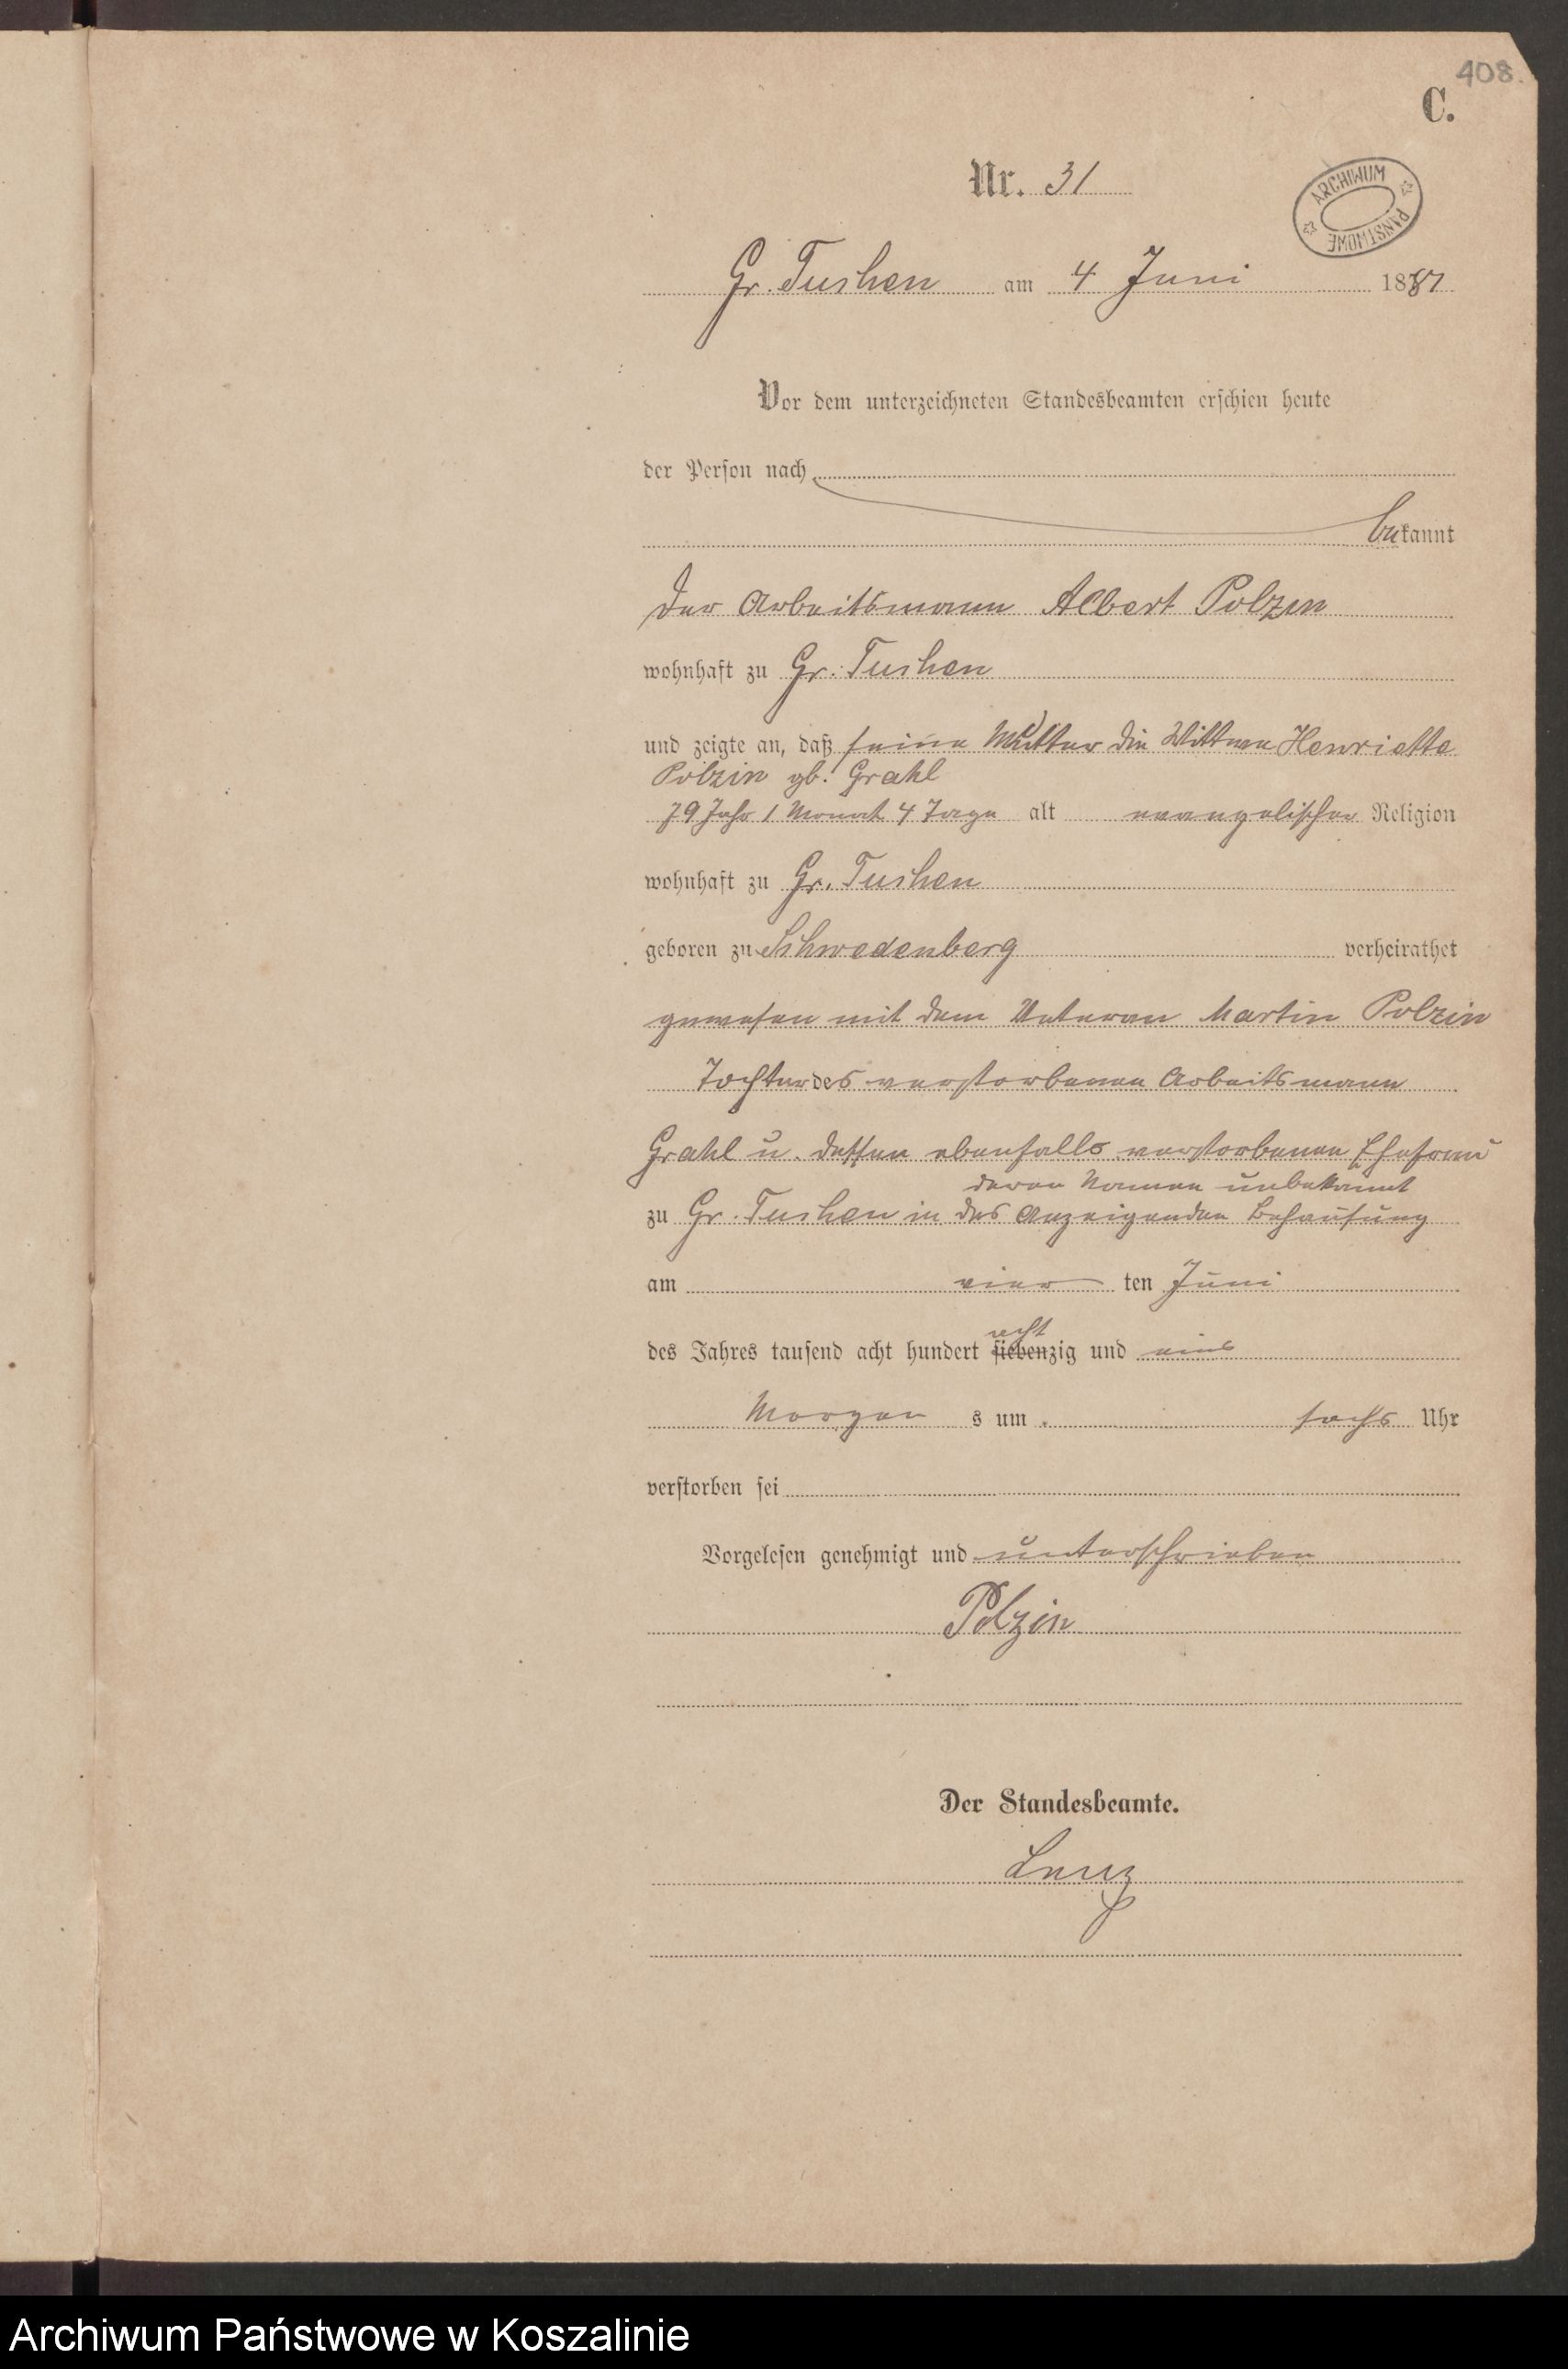 408.
C.
Nr. 31
ARCHIWUM PAŃSTWOWE
Gr. Tuchen am 4 Juni 1881
Vor dem unterzeichneten Standesbeamten erschien heute
der Person nach
bekannt
der Arbeitsmann Albert Polzin
wohnhaft zu Gr. Tuchen
und zeigte an, daß seine Mutter die Wittwe Henriette
Polzin gb. Grahl
79 Jahr 1 Monat 4 Tage alt evangelischer Religion
wohnhaft zu Gr. Tuchen
geboren zu Schwedenberg verheirathet
gewesen mit dem Veteran Martin Polzin
Tochter des verstorbenen Arbeitsmann
Grahl u. dessen ebenfalls verstorbenen Ehefrau
deren Namen unbekannt
zu Gr. Tuchen in des Anzeigenden Behausung
am vier ten Juni
acht
des Jahres tausend acht hundert siebenzig und eins
Morgen s um sechs Uhr
verstorben sei
Vorgelesen genehmigt und unterschrieben
Polzin
Der Standesbeamte.
Lenz
Archiwum Państwowe w Koszalinie